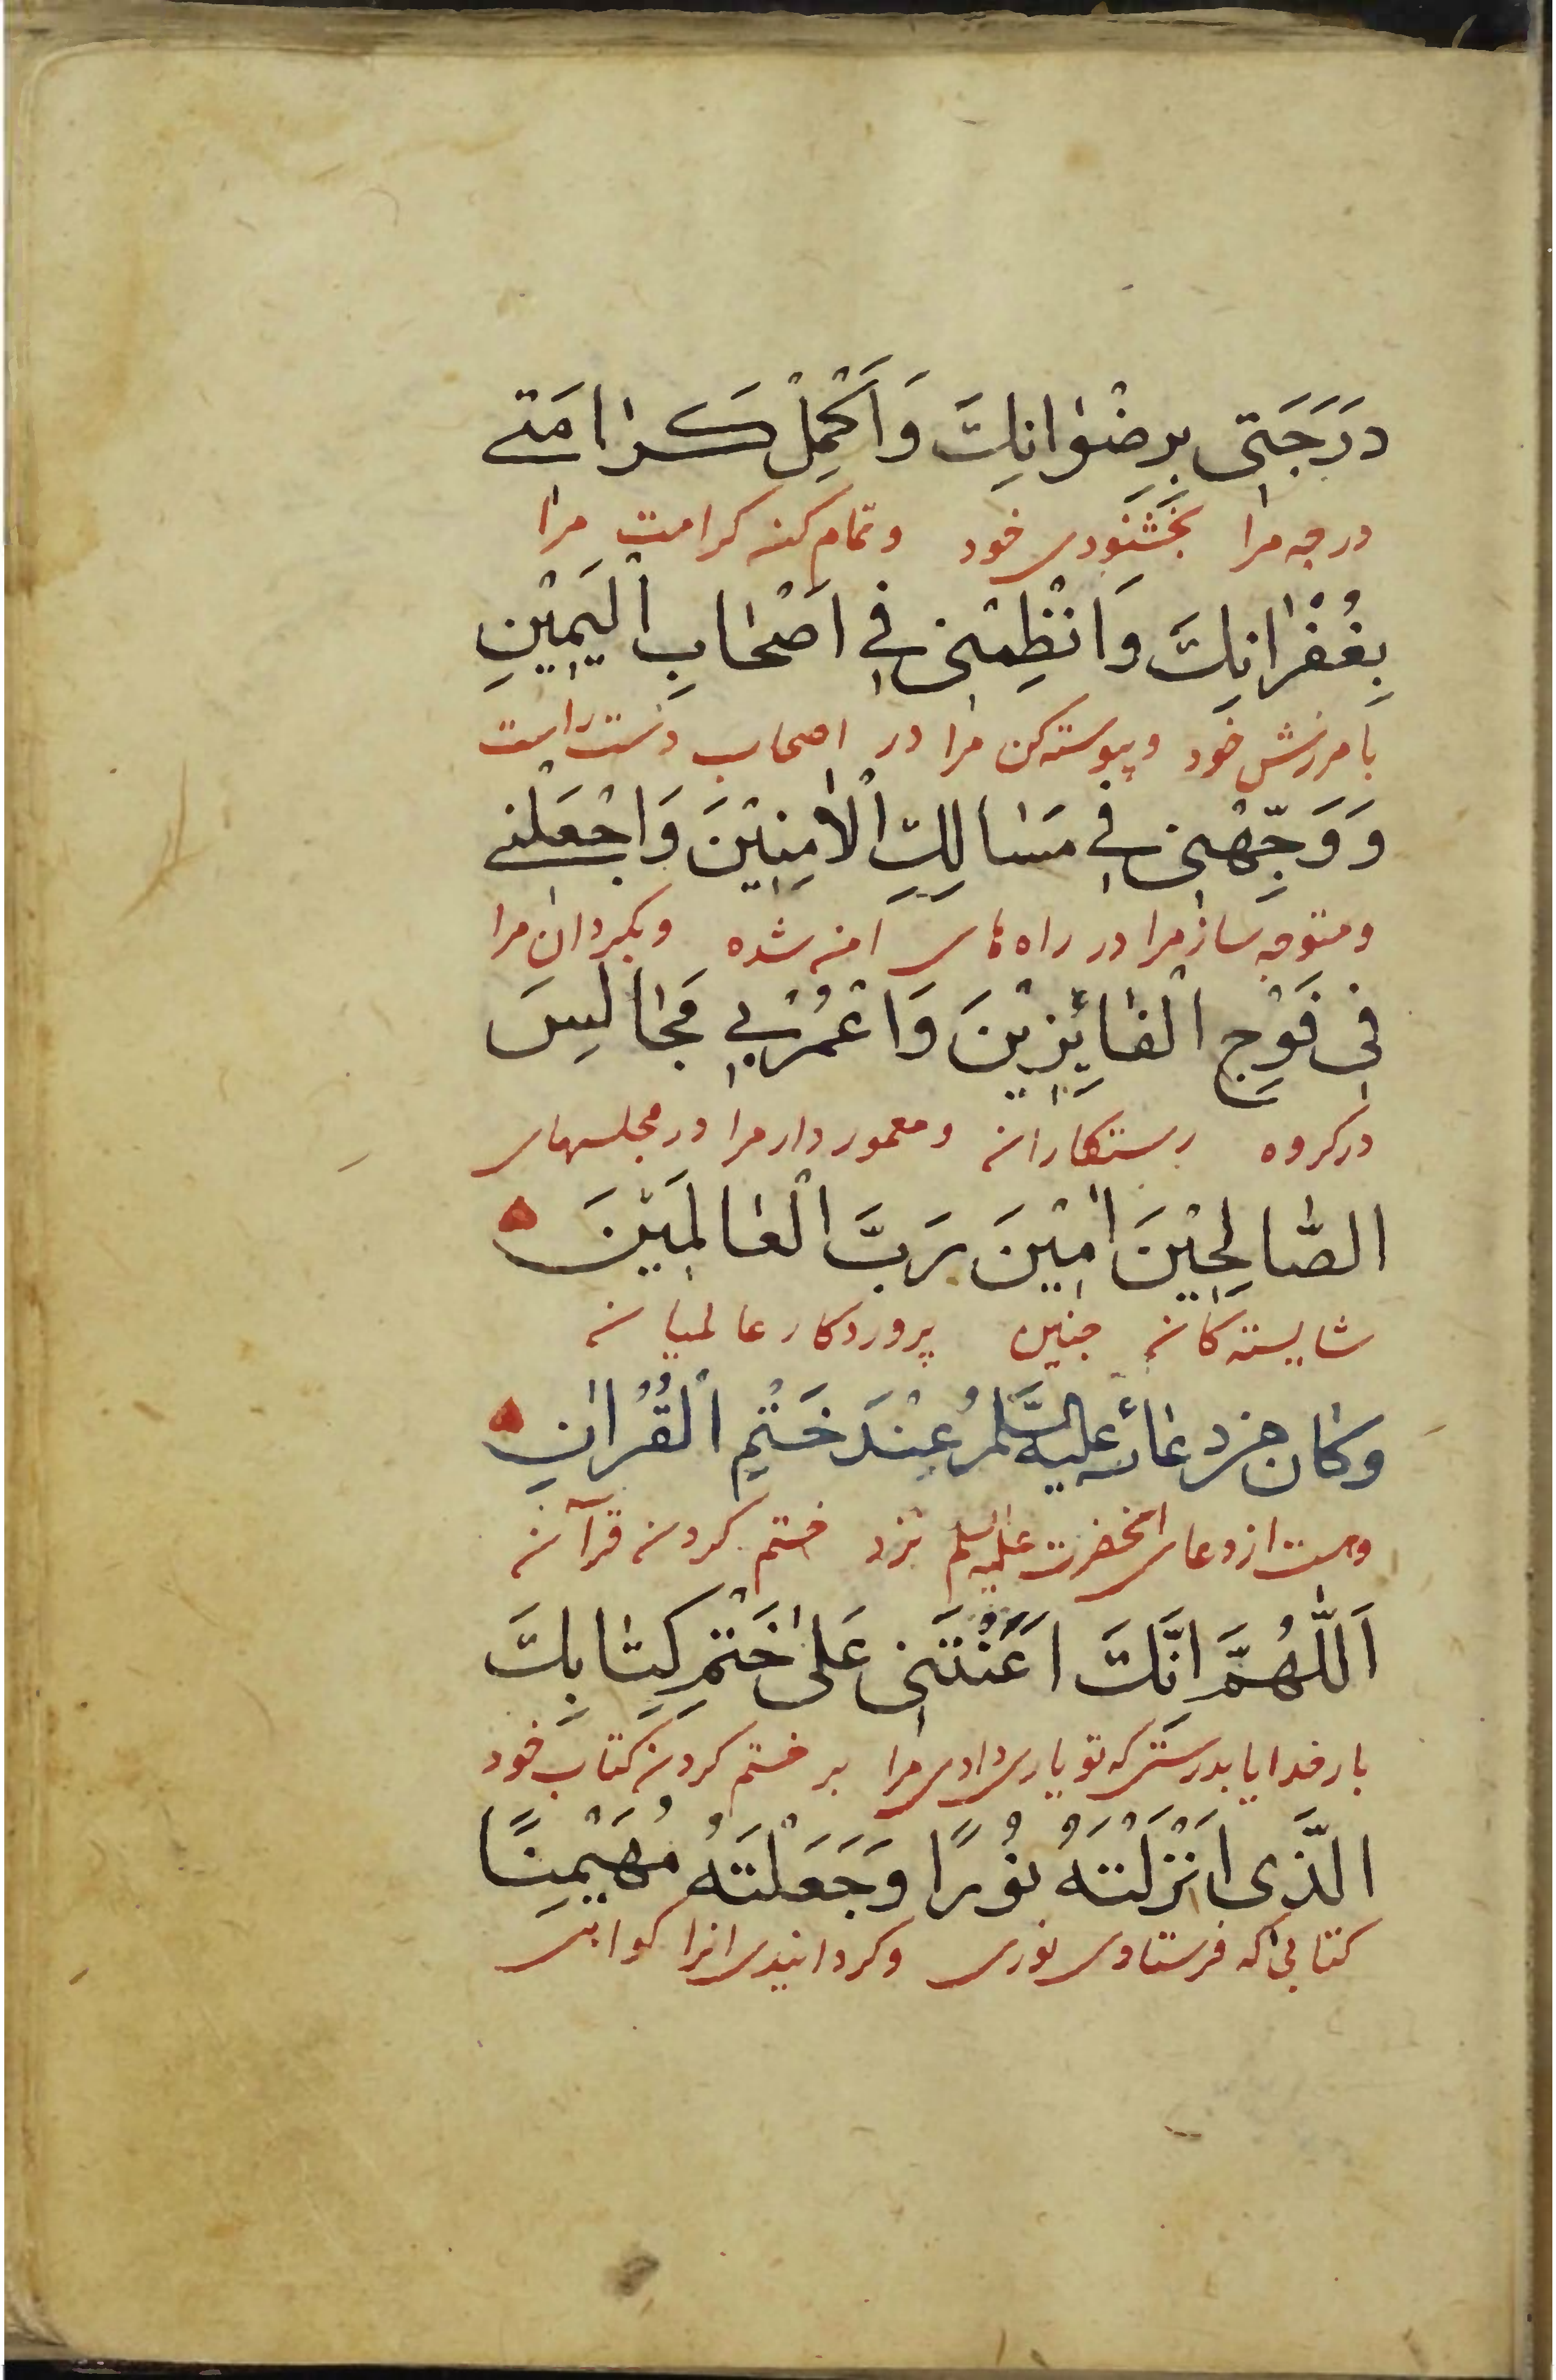 دَرَجَتِي بِرِضْوَانِكَ وَاَكْمِلْ كَرَامَتي
درجه مرا بخشنودی خود و تمام کن کرامت مرا
بِغُفْرَانِكَ وَانْظِمْنِي فِي اَصْحَابِ الْيَمِيْنِ
بامرزش خود و پیوسته کن مرا در اصحاب دست راست
وَوَجِّهْنِي فِي مَسَالِكِ الْاٰمِنِيْنَ وَاجْعَلْني
و متوجه ساز مرا در راه های امن شده و بکردان مرا
فِي فَوْجِ الْفَائِزِيْنَ وَاعْمُرْ بِي مَجَالِسَ
در کروه رستکاران و معمور دار مرا در مجلسهای
الصَّالِحِيْنَ اٰمِيْنَ رَبَّ الْعَالَمِيْنَ
شایسته کان چنین پروردکار عالمیان
وكان من دعائه عليه السَّلمُ عِنْدَ خَتْمِ الْقُرْاٰنِ
وهست از دعای انحضرت علیه السلم نزد ختم کردن قرآن
اَللّٰهُمَّ اِنَّكَ اَعَنْتَنِي عَلٰى خَتْمِ كِتَابِكَ
بار خدایا بدرستی که تو یاری دادی مرا بر ختم کردن کتاب خود
الَّذِي اَنْزَلْتَهُ نُوْرًا وَجَعَلْتَهُ مُهَيْمِنًا
کتابی که فرستادی نوری و کردانیدی انرا کواهی